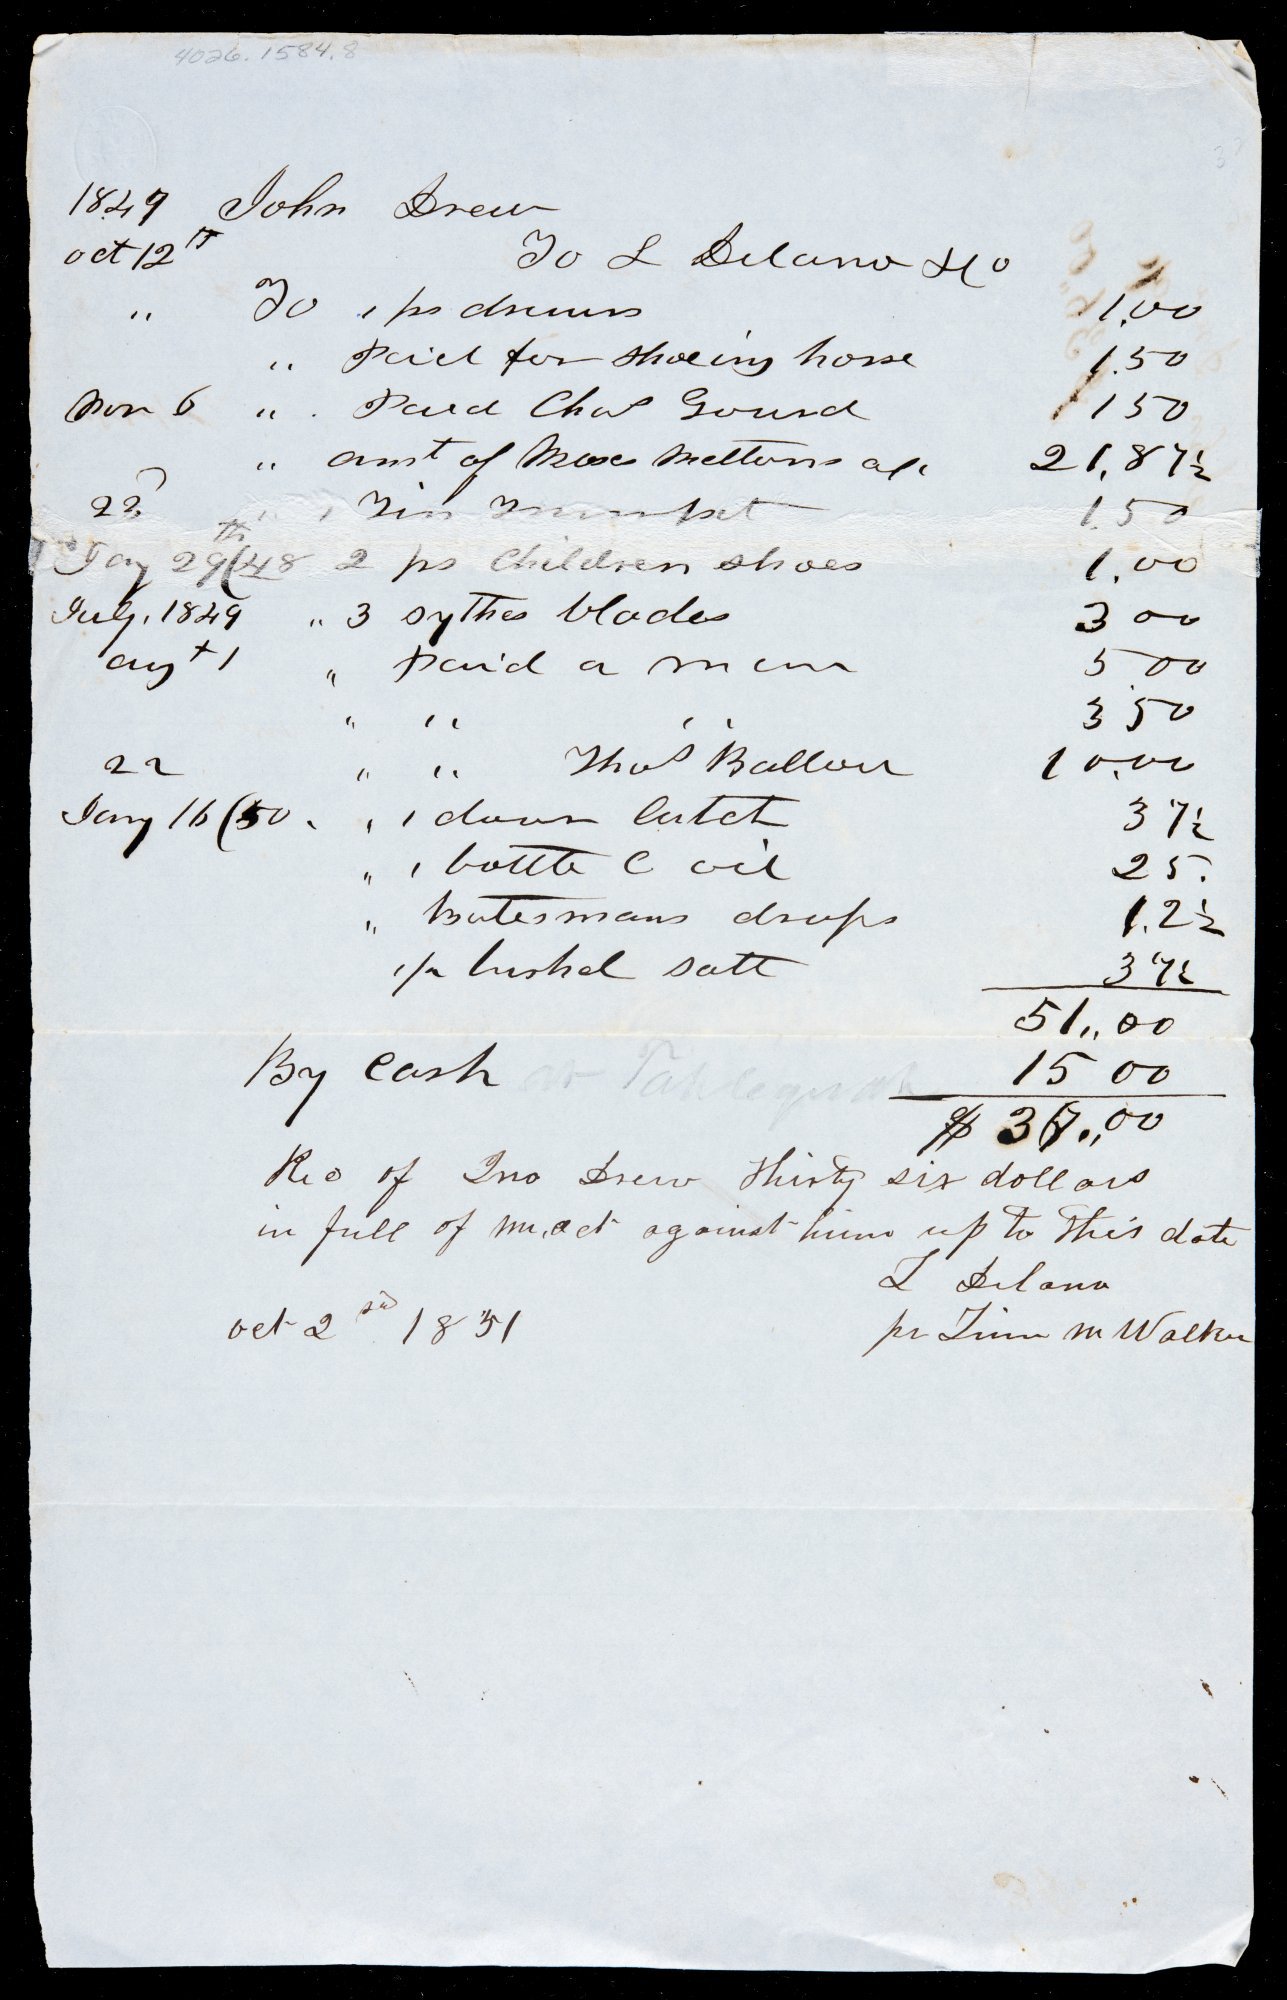 4026.1584.8
1849 John Drew
oct 12th
To L Delano & Co
" To 1 pr drawers 1.00
" Paid for Shoeing horse 1.50
Nov 6 " Paid Chas Gourd 1 50
" amt of Moses Meltons a/c 21.87½
22 " 1 Tin Trumpet 1.50
Jany 29th (48 2 pr Children shoes 1.00
July. 1849 " 3 sythes blades 3 00
augt 1 " Paid a man 5 00
" " " 3 50
22 " " Thos Ballou 10.00
Jany 16 (50. " 1 door latch 37½
" 1 bottle C oil 25.
" Batesmans drops 12½
1/2 bushel salt 37½
51,,00
By Cash at Tahlequah 15 00
$ 36,,00
Rec of Jno Drew thirty six dollars
in full of my act against him up to this date
L Delano
oct 2nd 1851 pr Tim M Walker